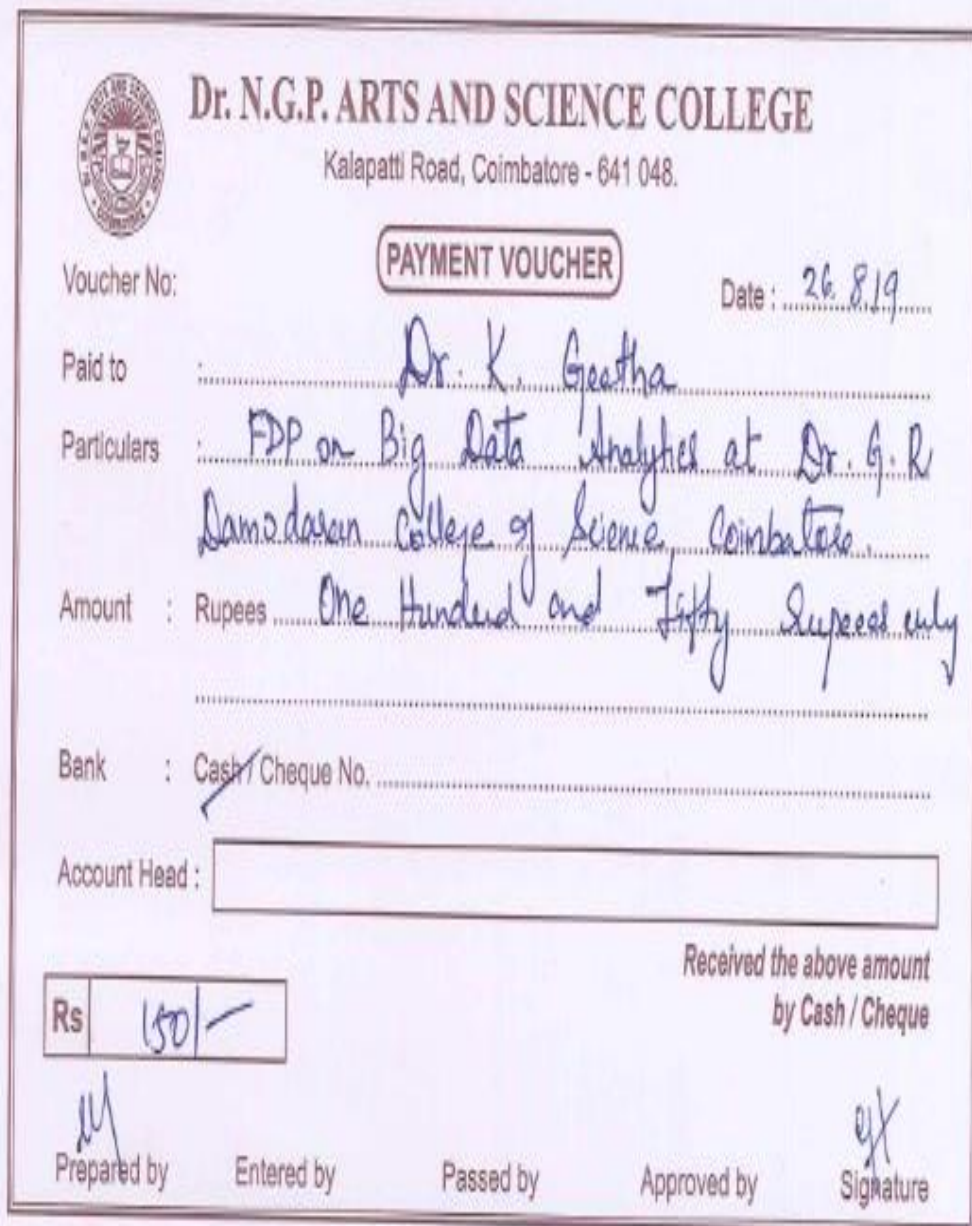 Dr. N.G.P. ARTS AND SCIENCE COLLEGE
Kalapatti Road, Coimbatore - 641 048.
PAYMENT VOUCHER
Voucher No:
Date : 26.8.19
Paid to : Dr. K. Geetha
Particulars : FDP on Big Data Analytics at Dr. G. R
Damodaran College of Science Coimbatore.
Amount : Rupees One Hundred and Fifty Rupees only
Bank : Cash / Cheque No.
Account Head :
Received the above amount
by Cash / Cheque
Rs 150/-
Prepared by Entered by Passed by Approved by Signature